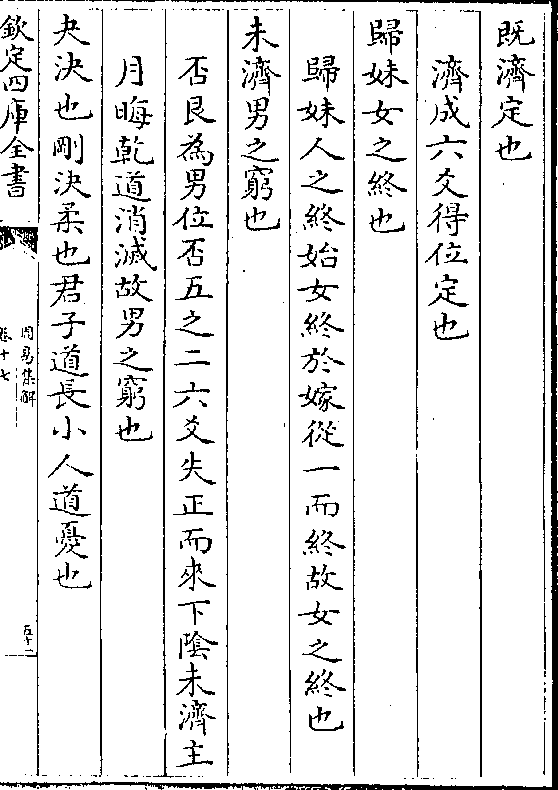 既濟定也
濟成六爻得位定也
歸妹女之終也
歸妹人之終始女終於嫁從一而終故女之終也
未濟男之窮也
否艮為男位否五之二六爻失正而來下陰未濟主
月晦乾道消滅故男之窮也
夬決也剛決柔也君子道長小人道憂也
欽定四庫全書
周易集解
卷十七